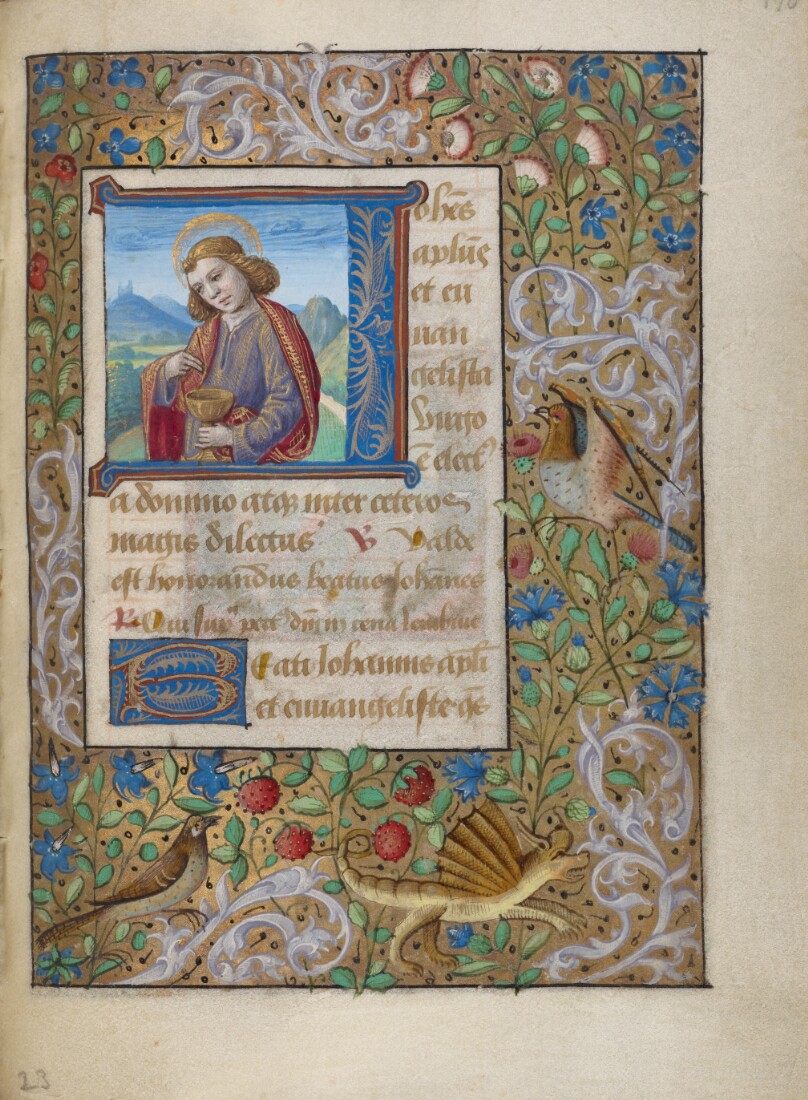 Iohēs
aplūs
et eu
uan
gelista
uirgo
ē elect⁹
a domino atq; inter ceteros
magis dilectus ℟ Valde
est honorandus beatus Iohānes
℟ Qui sup̄ pect⁹ dn̄i in cena
Beati Iohannis apl̄i
et euuangeliste q̄s
23